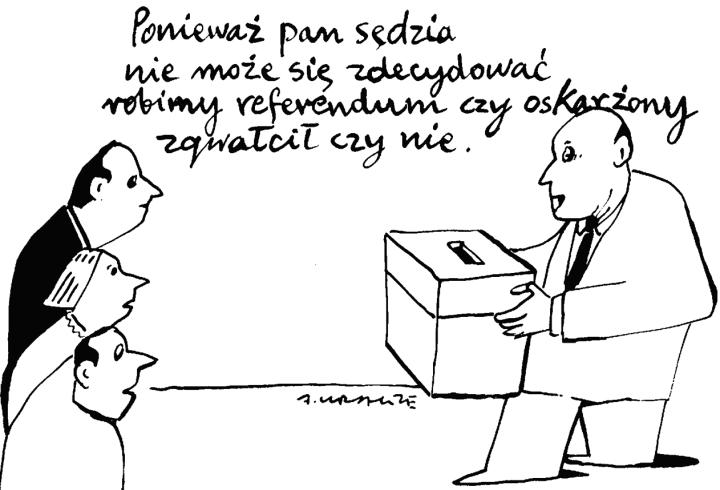 Ponieważ pan sędzia
nie może się zdecydować
robimy referendum czy oskarżony
zgwałcił czy nie.
A. KRAUZE